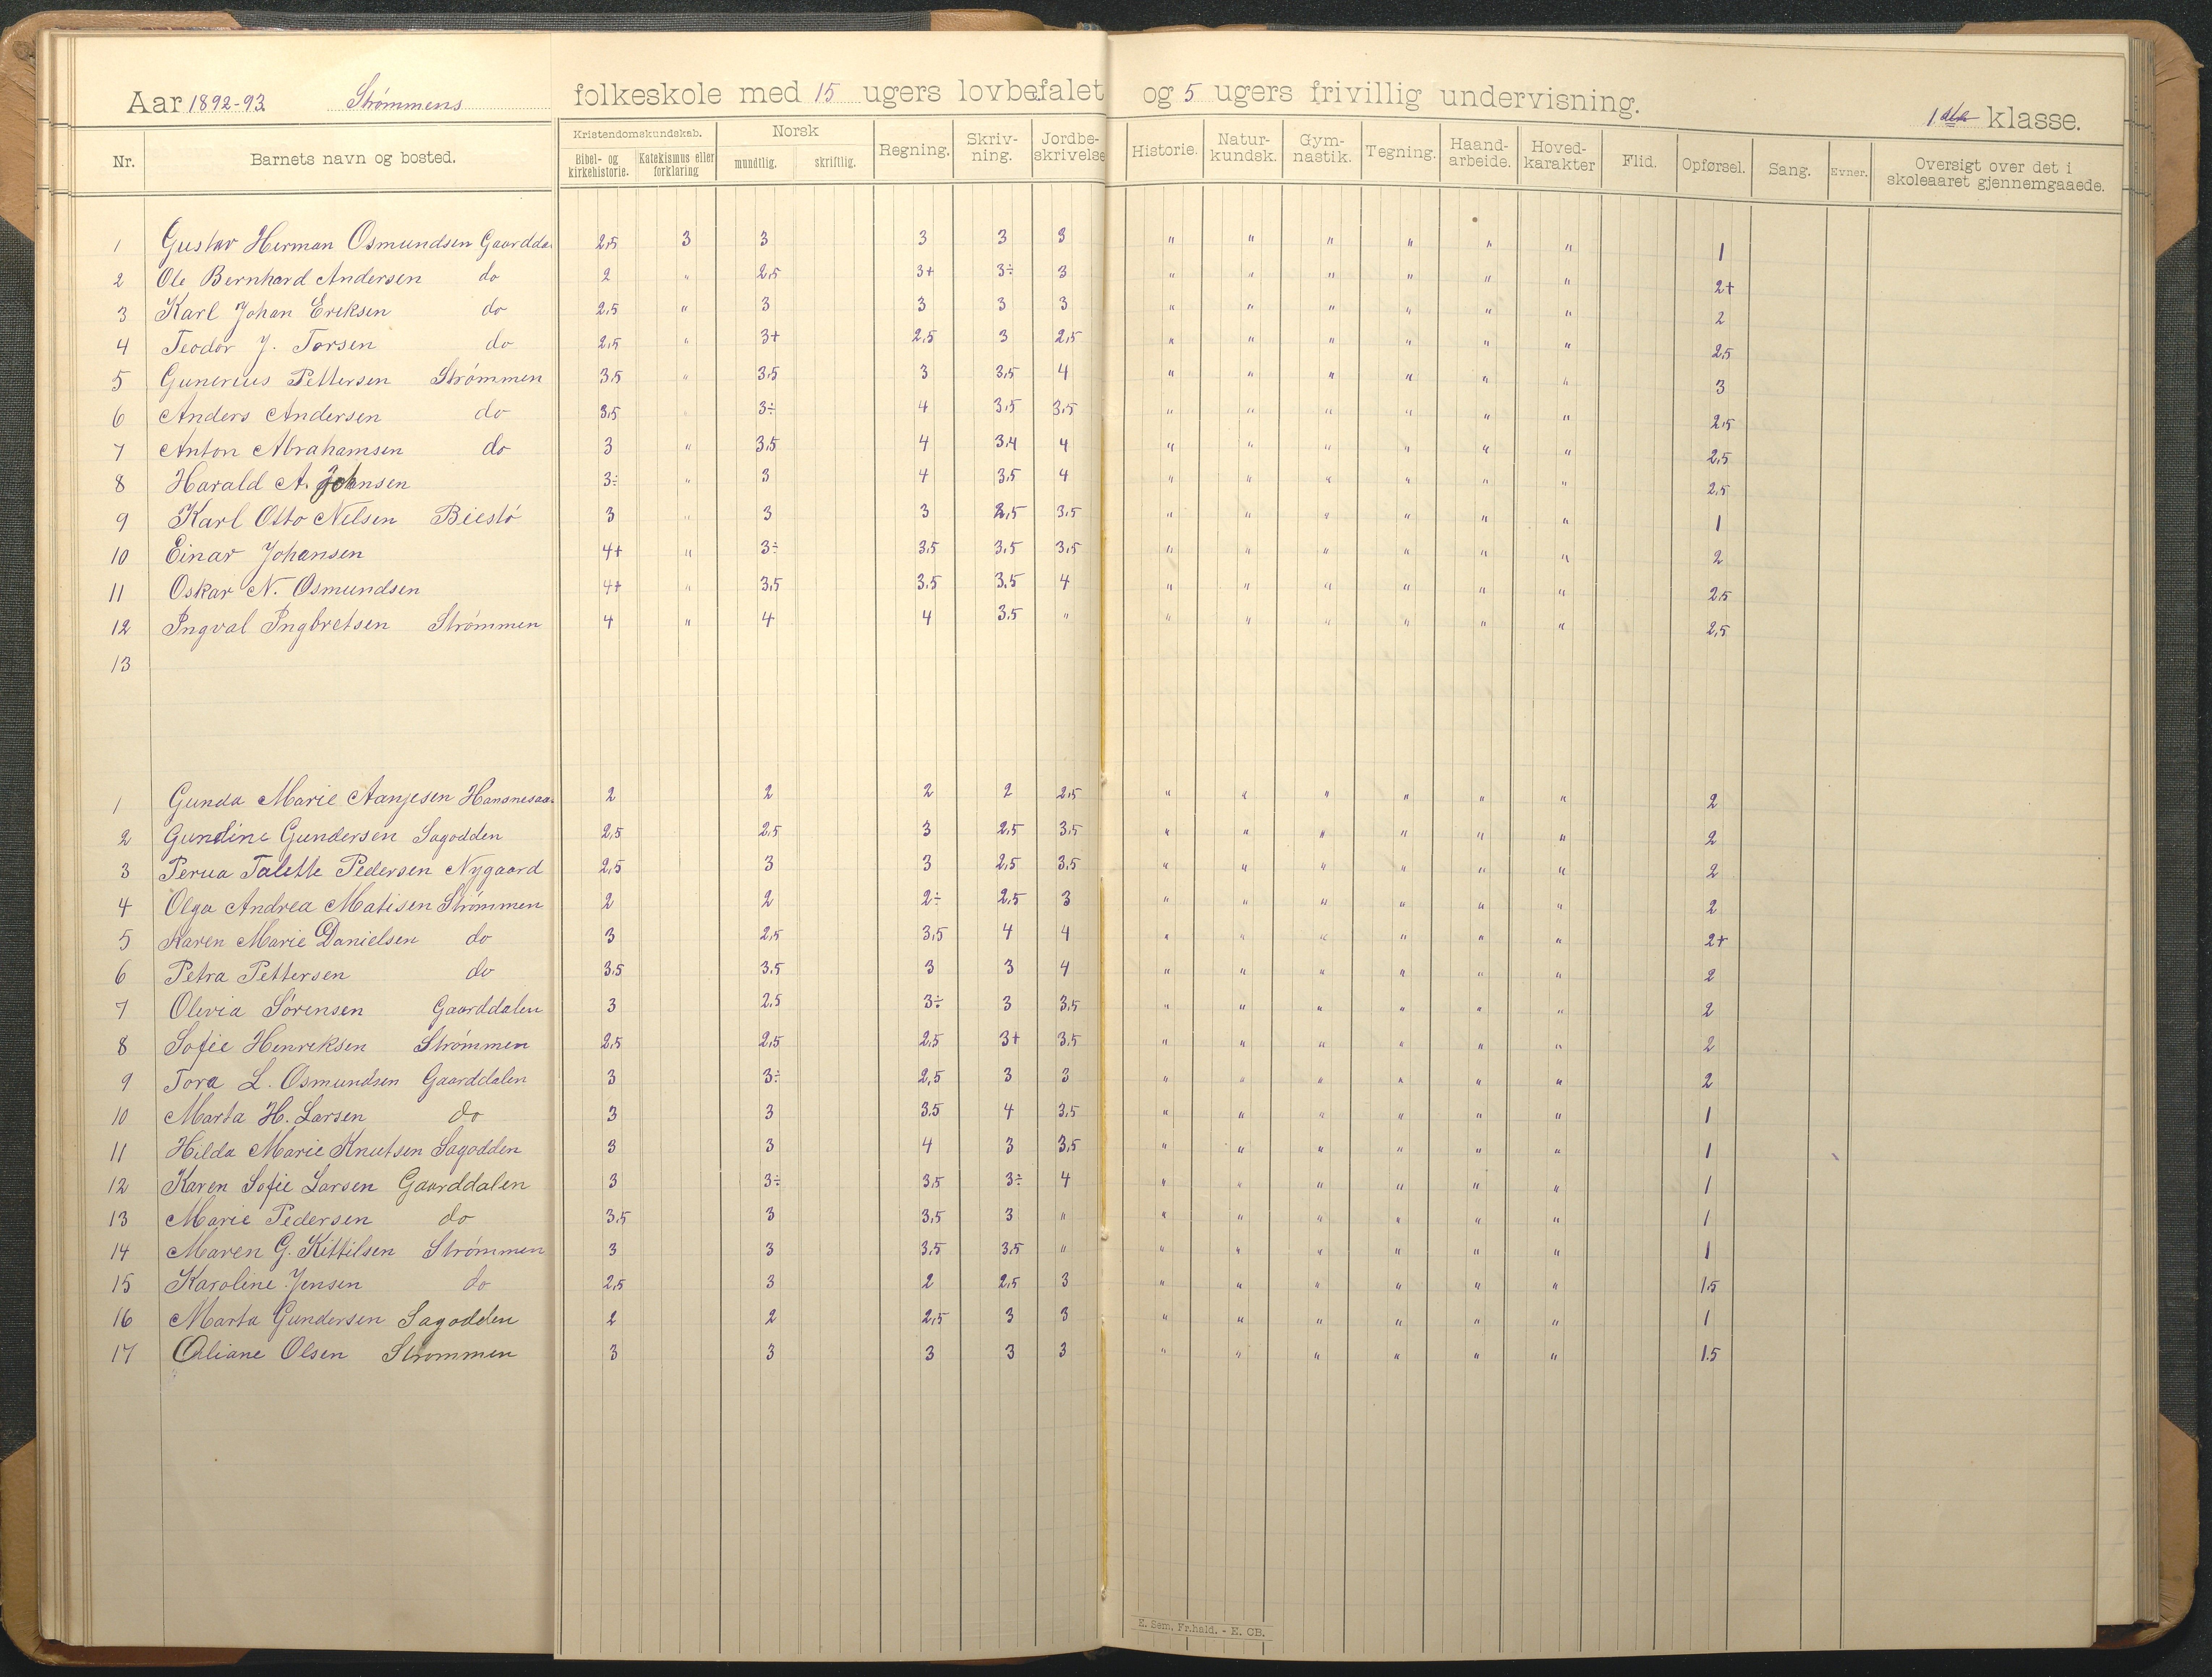 Aar 1892-93 Strømmens folkeskole med 15 ugers lovbefalet og 5 ugers frivillig undervisning. 1ste klasse.
Nr. Barnets navn og bosted. Kristendomskundskab. Bibel- og kirkehistorie. Katekismus eller forklaring Norsk mundtlig. skriftlig. Regning. Skriv-ning. Jordbe-skrivelse Historie. Natur-kundsk. Gym-nastik. Tegning. Haand-arbeide. Hoved-karakter Flid. Opførsel. Sang. Evner. Oversigt over det i skoleaaret gjennemgaaede.
1 Gustav Herman Osmundsen Gaardda 2,5 3 3 3 3 3 " " " " " " 1
2 Ole Bernhard Andersen do 2 " 2,5 3+ 3÷ 3 " " " " " " 2+
3 Karl Johan Eriksen do 2,5 " 3 3 3 3 " " " " " " 2
4 Teodor J. Torsen do 2,5 " 3+ 2,5 3 2,5 " " " " " " 2,5
5 Gunerius Pettersen Strømmen 3,5 " 3,5 3 3,5 4 " " " " " " 3
6 Anders Andersen do 3,5 " 3÷ 4 3,5 3,5 " " " " " " 2,5
7 Anton Abrahamsen do 3 " 3,5 4 3,4 4 " " " " " " 2,5
8 Harald A. Johnsen 3÷ " 3 4 3,5 4 " " " " " " 2,5
9 Karl Otto Nelsen Biestø 3 " 3 3 2,5 3,5 " " " " " " 1
10 Einar Johansen 4+ " 3÷ 3,5 3,5 3,5 " " " " " " 2
11 Oskar N. Osmundsen 4+ " 3,5 3,5 3,5 4 " " " " " " 2,5
12 Ingval Ingbretsen Strømmen 4 " 4 4 3,5 " " " " " " " 2,5
13
1 Gunda Marie Aanjesen Hansnesaa 2 2 2 2 2,5 " " " " " " 2
2 Gundine Gundersen Sagodden 2,5 2,5 3 2,5 3,5 " " " " " " 2
3 Perua Talette Pedersen Nygaard 2,5 3 3 2,5 3,5 " " " " " " 2
4 Olga Andrea Matisen Strømmen 2 2 2÷ 2,5 3 " " " " " " 2
5 Karen Marie Danielsen do 3 2,5 3,5 4 4 " " " " " " 2+
6 Petra Pettersen do 3,5 3,5 3 3 4 " " " " " " 2
7 Olevia Sørensen Gaarddalen 3 2,5 3÷ 3 3,5 " " " " " " 2
8 Sofie Henriksen Strømmen 2,5 2,5 2,5 3+ 3,5 " " " " " " 2
9 Tora L. Osmundsen Gaarddalen 3 3÷ 2,5 3 3 " " " " " " 2
10 Marta H. Larsen do 3 3 3,5 4 3,5 " " " " " " 1
11 Hilda Marie Knutsen Sagodden 3 3 4 3 3,5 " " " " " " 1
12 Karen Sofie Larsen Gaarddalen 3 3÷ 3,5 3÷ 4 " " " " " " 1
13 Marie Pedersen do 3,5 3 3,5 3 " " " " " " " 1
14 Maren G. Kittilsen Strømmen 3 3 3,5 3,5 " " " " " " " 1
15 Karoline Jensen do 2,5 3 2 2,5 3 " " " " " " 1,5
16 Marta Gundersen Sagodden 2 2 2,5 3 3 " " " " " " 1
17 Oliane Olsen Strømmen 3 3 3 3 3 " " " " " " 1.5
E. Sem, Fr.hald. - E. CB.